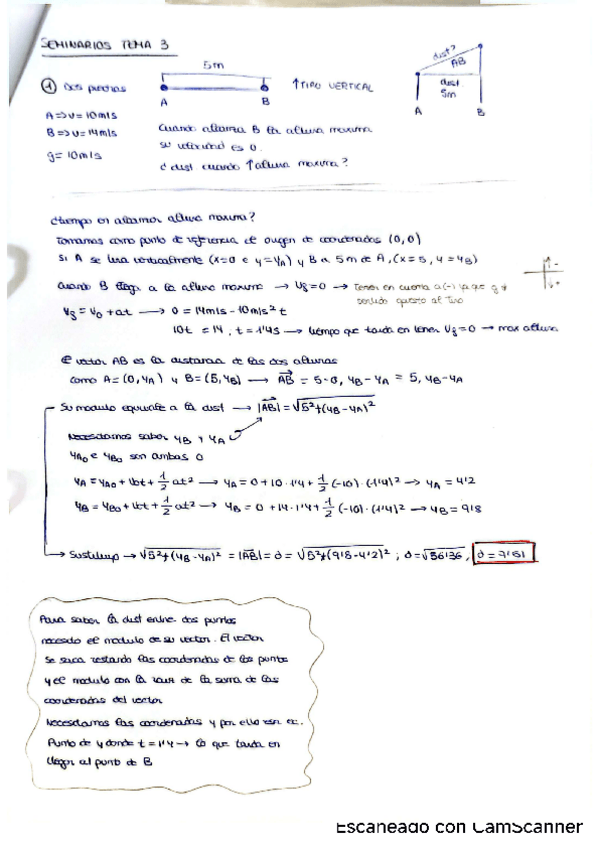 SEMINARIOS TEMA 3
① Dos puntos
5m
A B
↑ TIPO VERTICAL
dist?
AB
dist
5m
A B
A => v = 10m/s
B => v = 14m/s
g = 10m/s
Cuando alcanza B la altura maxima
su velocidad es 0.
¿ dist. cuando ↑ altura maxima?
¿tiempo en alcanzar altura maxima?
Tomamos como punto de referencia el origen de coordenadas (0,0)
Si A se lanza verticalmente (x=0 e y=yA) y B a 5m de A, (x=5, y=yB)
Cuando B llega a la altura maxima → vf=0 → Tener en cuenta a(-) ya que g
sentido opuesto al tiro
vf = v0 + at → 0 = 14m/s - 10m/s² t
10t = 14, t = 1'4s → tiempo que tarda en tener vf=0 → max altura
El vector AB es la distancia de las dos alturas
como A=(0,yA) y B=(5,yB) → AB = 5-0, yB-yA = 5, yB-yA
Su modulo equivale a la dist → |AB| = √5²+(yB-yA)²
Necesitamos saber yB y yA
yA0 e yB0 son ambas 0
yA = yA0 + v0t + 1/2 at² → yA = 0+10·1'4+ 1/2 (-10)·(1'4)² → yA = 4'2
yB = yB0 + v0t + 1/2 at² → yB = 0+14·1'4+ 1/2 (-10)·(1'4)² → yB = 9'8
Sustituyo → √5²+(yB-yA)² = |AB| = d = √5²+(9'8-4'2)² ; d=√56'36, d = 7'51
Para saber la dist entre dos puntos
necesito el modulo de su vector. El vector
se saca restando las coordenadas de los puntos
y el modulo con la raiz de la suma de las
coordenadas del vector
Necesitamos las coordenadas y por ello
Punto de y donde t = 1'4 → lo que tarda en
llegar al punto de B
Escaneado con CamScanner